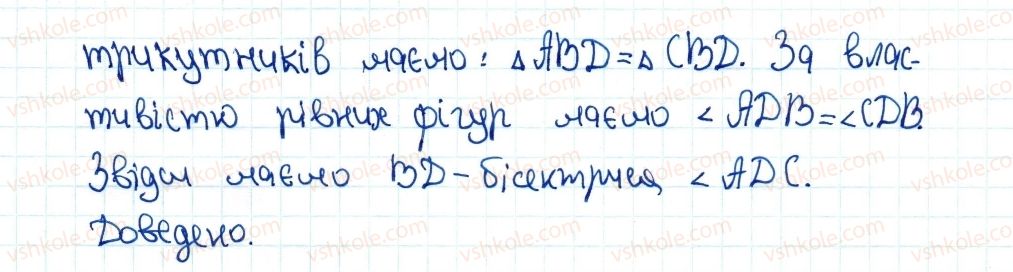 трикутників маємо: ∆ ABD = ∆ CBD. За влас-
тивістю рівних фігур маємо < ADB = < CDB.
Звідси маємо BD - бісектриса < ADC.
Доведено.